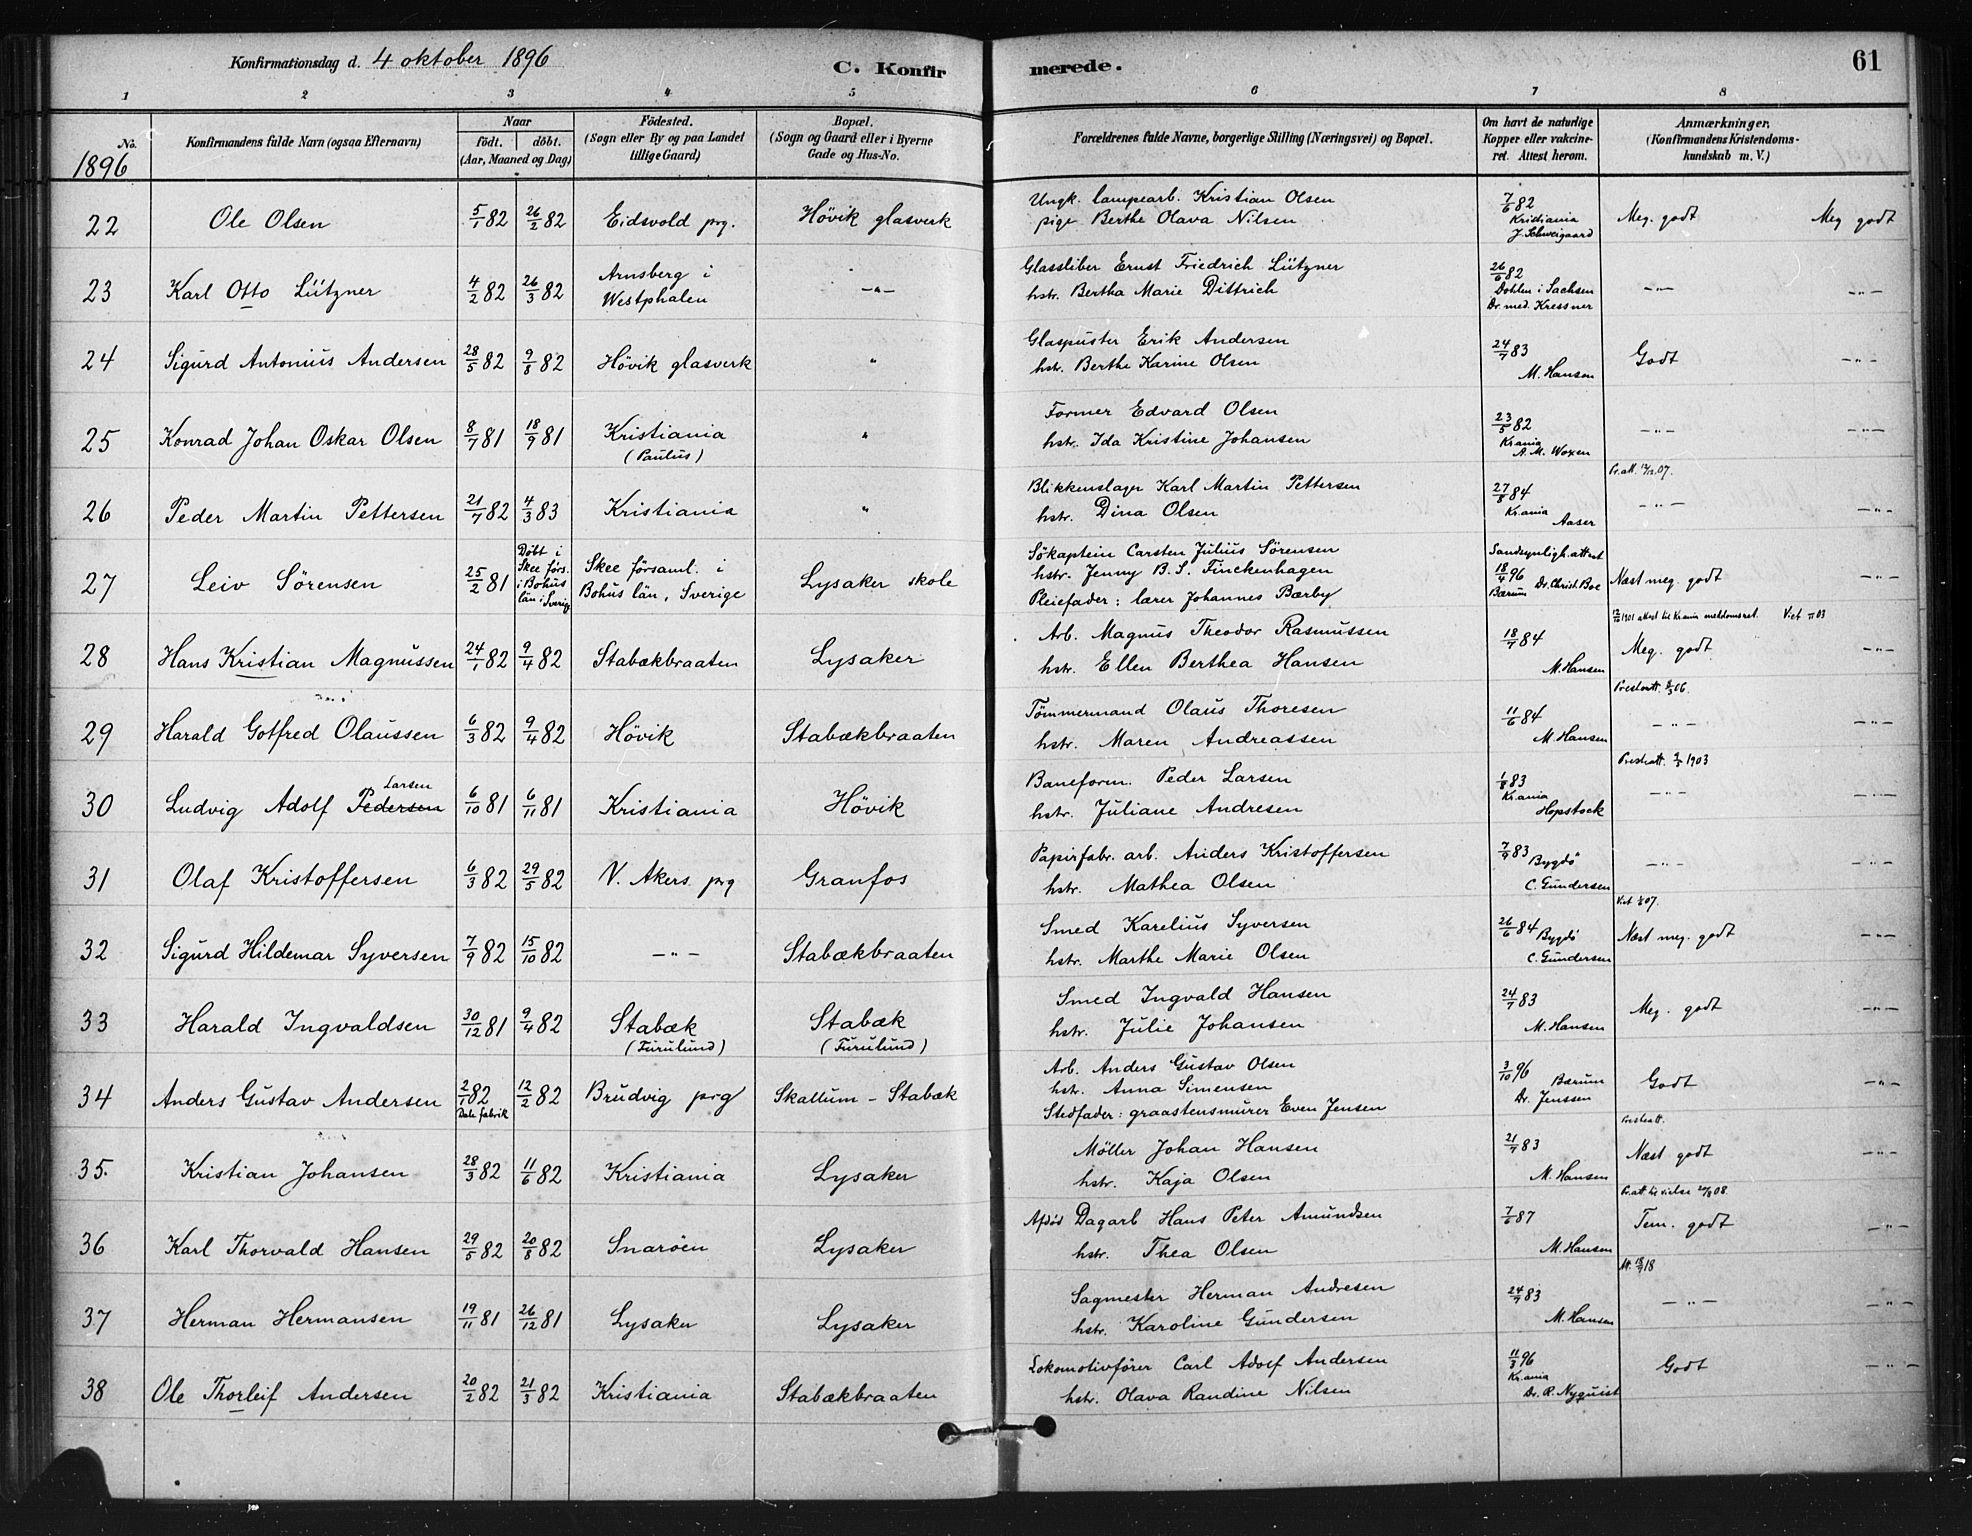 Konfirmationsdag d. 4 oktober 1896
C. Konfirmerede.
61
1 2 3 4 5 6 7 8
No. Konfirmandens fulde Navn (ogsaa Efternavn) Naar født. døbt. (Aar, Maaned og Dag) Fødested. (Sogn eller By og paa Landet tillige Gaard) Bopæl. (Sogn og Gaard eller i Byerne Gade og Hus-No. Forældrenes fulde Navne, borgerlige Stilling (Næringsvei) og Bopæl. Om havt de naturlige Kopper eller vakcineret. Attest herom. Anmærkninger. (Konfirmandens Kristendomskundskab m. V.)
1896
22 Ole Olsen 5/1 82 26/2 82 Eidsvold prg. Hövik glasverk Ungk. lampearb. Kristian Olsen pige Berthe Olava Nilsen 7/6 82 Kristiania J. Schweigaard Meg. godt Meg godt
23 Karl Otto Lützner 4/2 82 26/3 82 Arnsberg i Westphalen —"— Glassliber Ernst Friedrich Lützner hstr. Bertha Marie Dittrich 26/6 82 Dohlen i Sachsen Dr. med. Kressner —"— —"—
24 Sigurd Antonius Andersen 28/5 82 9/8 82 Hövik glasverk " Glaspuster Erik Andersen hstr. Berthe Karine Olsen 24/7 83 M. Hansen Godt —"—
25 Konrad Johan Oskar Olsen 8/7 81 18/9 81 Kristiania (Paulus) " Former Edvard Olsen hstr. Ida Kristine Johansen 23/5 82 Kr.ania A. M. Woxen —"— —"—
26 Peder Martin Pettersen 21/7 82 4/3 83 Kristiania " Blikkenslager Karl Martin Pettersen hstr. Dina Olsen 27/8 84 Kr.ania Aaser Pr.att. 07. —"— —"—
27 Leiv Sörensen 25/2 81 Döbt i Skee förs. i Bohus län i Sverige Skee församl. i Bohus län, Sverige Lysaker skole Sökaptein Carsten Julius Sörensen hstr. Jenny B. S. Finckenhagen Pleiefader: lærer Johannes Bærby Sandsynligh. attest 18/4 96 Bærum Dr. Christ. Boe Næst meg. godt —"—
28 Hans Kristian Magnussen 24/1 82 9/4 82 Stabækbraaten Lysaker Arb. Magnus Theodor Rasmussen hstr. Ellen Berthea Hansen 18/7 84 M. Hansen 1901 attest til Kr.ania meddomsret. Viet 03 Meg. godt —"—
29 Harald Gotfred Olaussen 6/3 82 9/4 82 Hövik Stabækbraaten Tömmermand Olaus Thoresen hstr. Maren Andreassen 11/6 84 M. Hansen Presteatt. 8/3 06. —"— —"—
30 Ludvig Adolf Pedersen Larsen 6/10 81 6/11 81 Kristiania Hövik Baneform. Peder Larsen hstr. Juliane Andresen 1/8 83 Kr.ania Hopstock Presteatt. 1903 —"— —"—
31 Olaf Kristoffersen 6/3 82 29/5 82 V. Akers prg Granfos Papirfabr. arb. Anders Kristoffersen hstr. Mathea Olsen 7/9 83 Bygdö C. Gundersen —"— —"—
32 Sigurd Hildemar Syversen 7/9 82 15/10 82 —"— Stabækbraaten Smed Karelius Syversen hstr. Marthe Marie Olsen 26/6 84 Bygdö C. Gundersen Viet 07. Næst meg. godt —"—
33 Harald Ingvaldsen 30/12 81 9/4 82 Stabæk (Furulund) Stabæk (Furulund) Smed Ingvald Hansen hstr. Julie Johansen 24/7 83 M. Hansen Meg. godt —"—
34 Anders Gustav Andersen 2/1 82 Dale fabrik 12/2 82 Brudvig prg Skallum – Stabæk Arb. Anders Gustav Olsen hstr. Anna Simensen Stedfader: graastensmurer Even Jensen 3/10 96 Bærum Dr. Jenssen Godt —"—
35. Kristian Johansen 28/3 82 11/6 82 Kristiania Lysaker Möller Johan Hansen hstr. Kaja Olsen 21/7 83 M. Hansen Presteatt. Næst godt —"—
36 Karl Thorvald Hansen 29/5 82 20/8 82 Snaröen Lysaker Afdöd Dagarb Hans Peter Amundsen hstr. Thea Olsen 7/6 87 M. Hansen Pr.att. til vielse 08. Tem. godt —"—
37 Herman Hermansen 19/11 81 26/12 81 Lysaker Lysaker Sagmester Herman Andresen hstr. Karoline Gundersen 24/7 83 M. Hansen 18 —"— —"—
38 Ole Thorleif Andersen 20/2 82 21/3 82 Kristiania Stabækbraaten Lokomotivförer Carl Adolf Andersen hstr. Olava Randine Nilsen 11/3 96 Kr.ania Dr. R. Nyquist Godt —"—